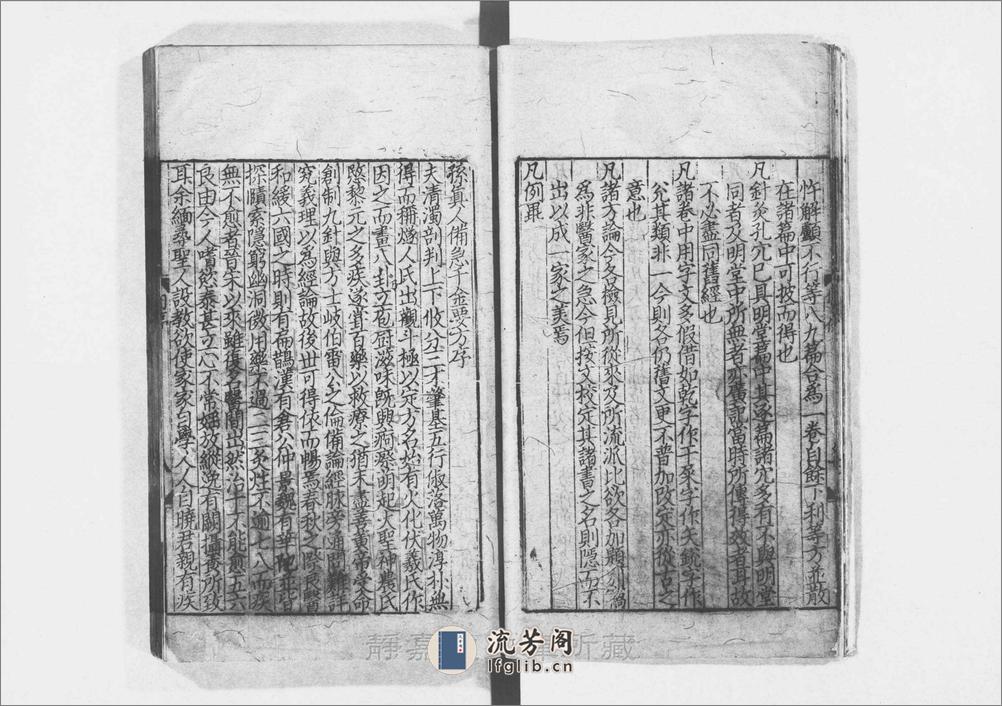 忤解顱不行等八九篇合為一卷自餘下利等方並散
在諸篇中可披而得也
凡針灸孔穴已具明堂篇中其逐篇諸穴多有不與明堂
同者及明堂中所無者亦廣記當時所傳得效者耳故
不必盡同舊經也
凡諸卷中用字文多假借如乾字作干屎字作矢銳字作
兊其類非一今則各仍舊文更不普加改定亦從古之
意也
凡諸方論今各檢見所從來及所流派比欲各加題別竊
為非醫家之急今但按文校定其諸書之名則隱而不
出以成一家之美焉
凡例畢
孫真人備急千金要方序
夫清濁剖判上下攸分三才肇基五行俶落萬物淳朴無
得而稱燧人氏出觀斗極以定方名始有火化伏羲氏作
因之而畫八卦立庖廚滋味既興痾瘵萌起大聖神農氏
愍黎元之多疾遂嘗百藥以救療之猶未盡善黃帝受命
創制九針與方士岐伯雷公之倫備論經脉旁通問難詳
究義理以為經論故後世可得依而暢焉春秋之際良醫
和緩六國之時則有扁鵲漢有倉公仲景魏有華佗並皆
探賾索隱窮幽洞微用藥不過二三灸炷不逾七八而疾
無不愈者晉宋以來雖復名醫間出然治十不能愈五六
良由今人嗜慾泰甚立心不常婬放縱逸有闕攝養所致
耳余緬尋聖人設教欲使家家自學人人自曉君親有疾
流芳阁
lfglib.cn
靜嘉 所藏